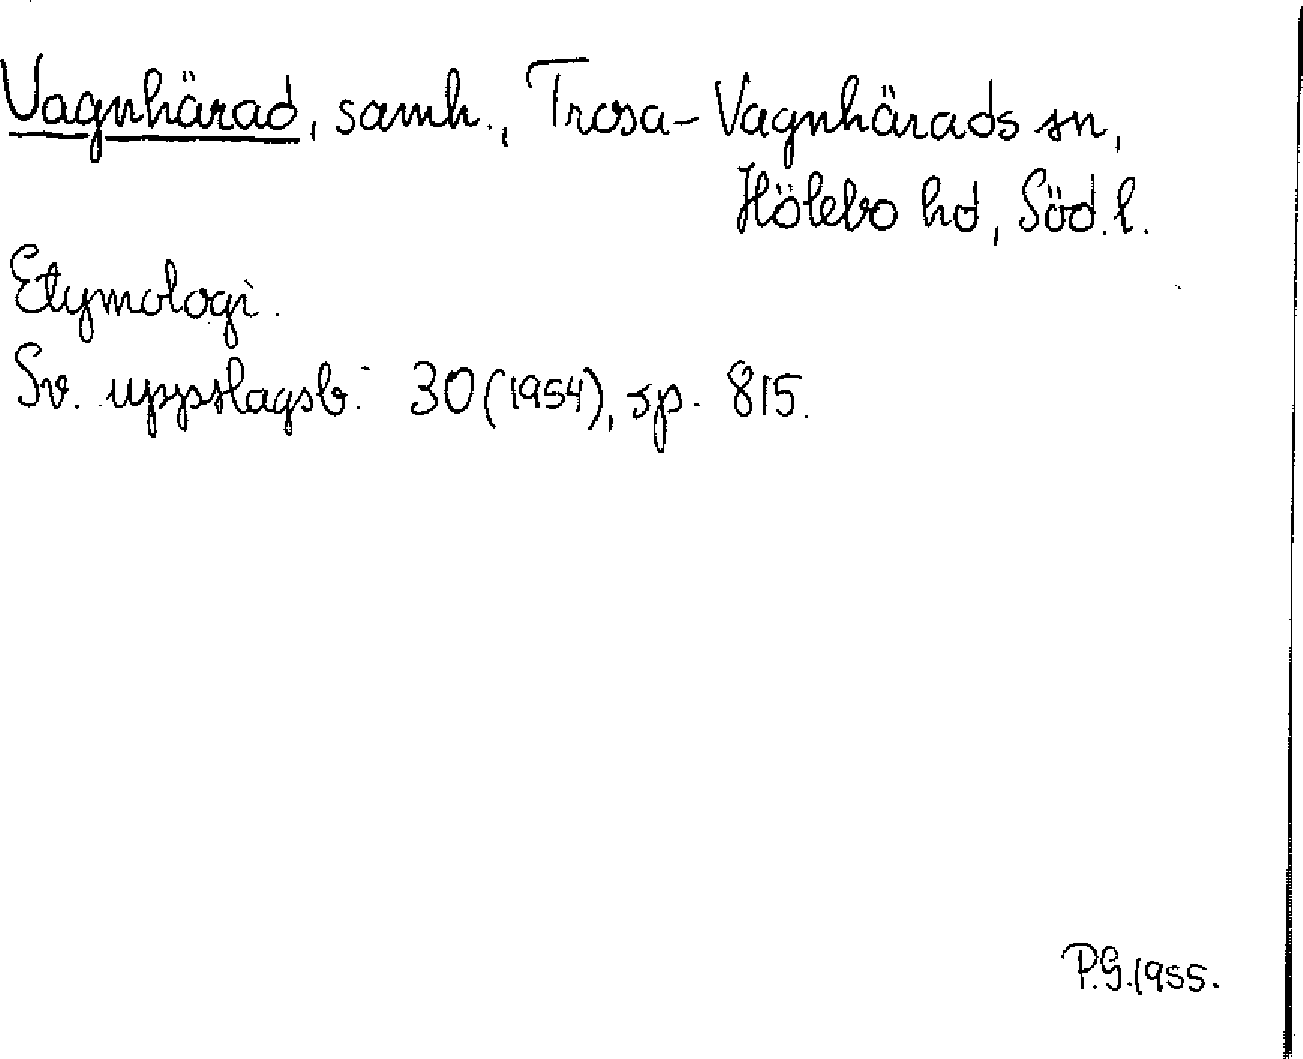 Vagnhärad, samh., Trosa-Vagnhärads sn,
Hölebo hd, Söd.l.
Etymologi.
Sv. uppslagsb. 30(1954), sp. 815.
P.G.1955.